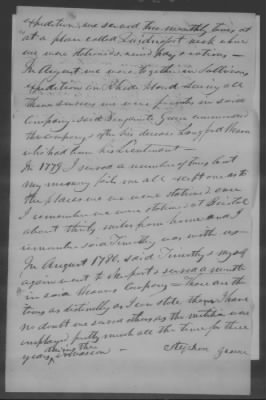 expedition we served two monthly tours at
at a place called Quidnesset neck where
we were stationed several days & nations —
In August we were together in Sullivans
expedition on Rhode Island during all
these services we were privates in said
Company said Benjamin Green commanded
the company & after his decease Langford Weaver
who had been his Lieutenant —
In 1779 I served a number of tours but
my memory fails me all except one as to
the places we were stationed once
I remember we were stationed at Bristol
about thirty miles from home and I
remember said Timothy was with us
In August 1780, said Timothy & myself
again went to Newport & served a month
in said Weavers Company — Those are the
tours as distinctly as I can state them I have
no doubt we served others as the militia were
employed pretty much all the time for three
years during the invasion — Stephen Greene